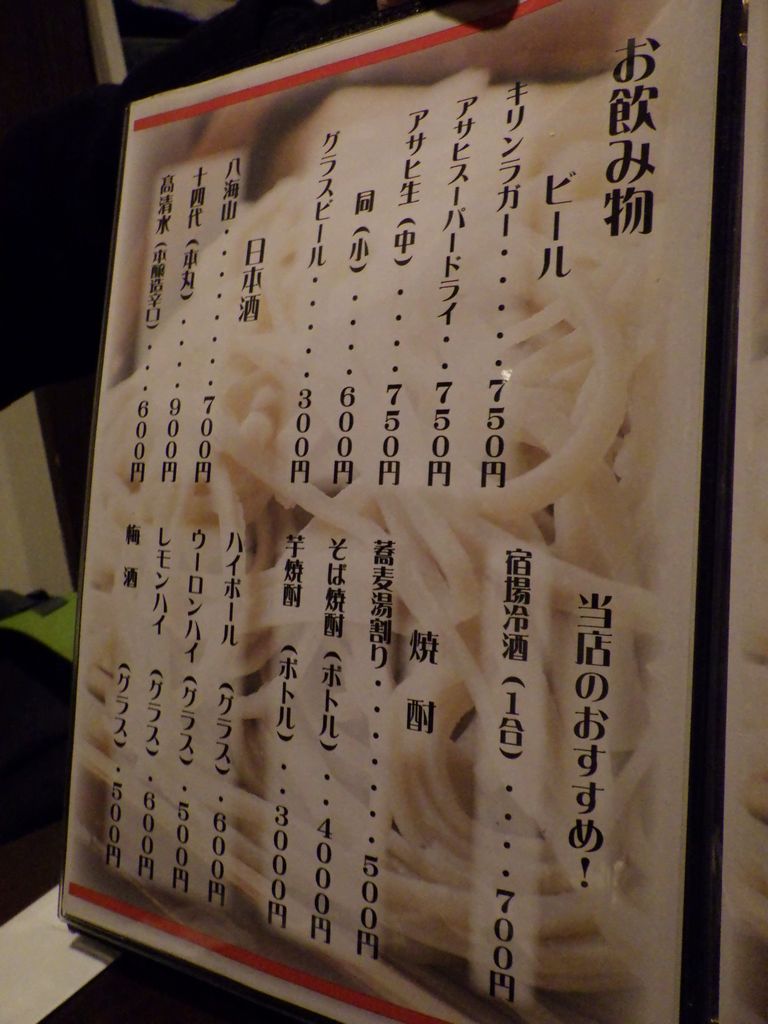 お飲み物
ビール
キリンラガー・・・・・・750円
アサヒスーパードライ・・750円
アサヒ生（中）・・・・750円
同（小）・・・・600円
グラスビール・・・・・・300円
日本酒
八海山・・・・・・・・700円
十四代（本丸）・・・・900円
高清水（本醸造辛口）・・・600円
当店のおすすめ！
宿場冷酒（1合）・・・・・700円
焼酎
蕎麦湯割り・・・・・・・・500円
そば焼酎（ボトル）・・4000円
芋焼酎（ボトル）・・3000円
ハイボール（グラス）・600円
ウーロンハイ（グラス）・500円
レモンハイ（グラス）・600円
梅酒（グラス）・500円